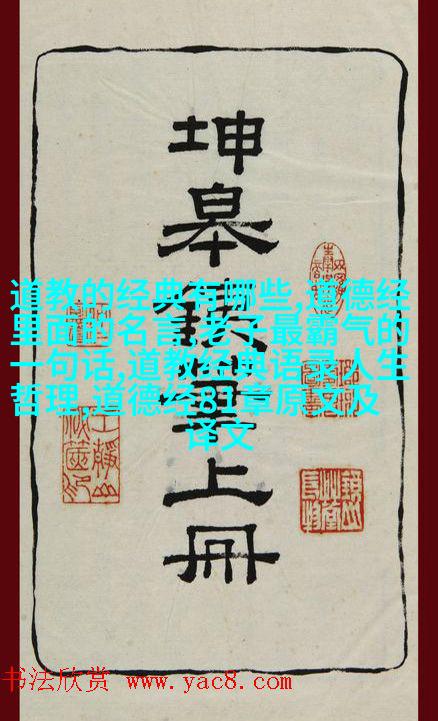 坤皋鐵筆上冊
道教的经典有哪些,道德经
里面的名言,老子最霸气的
一句话,道教经典语录人生
哲理,道德经81章原文及
译文
书法欣赏 www.yac8.com